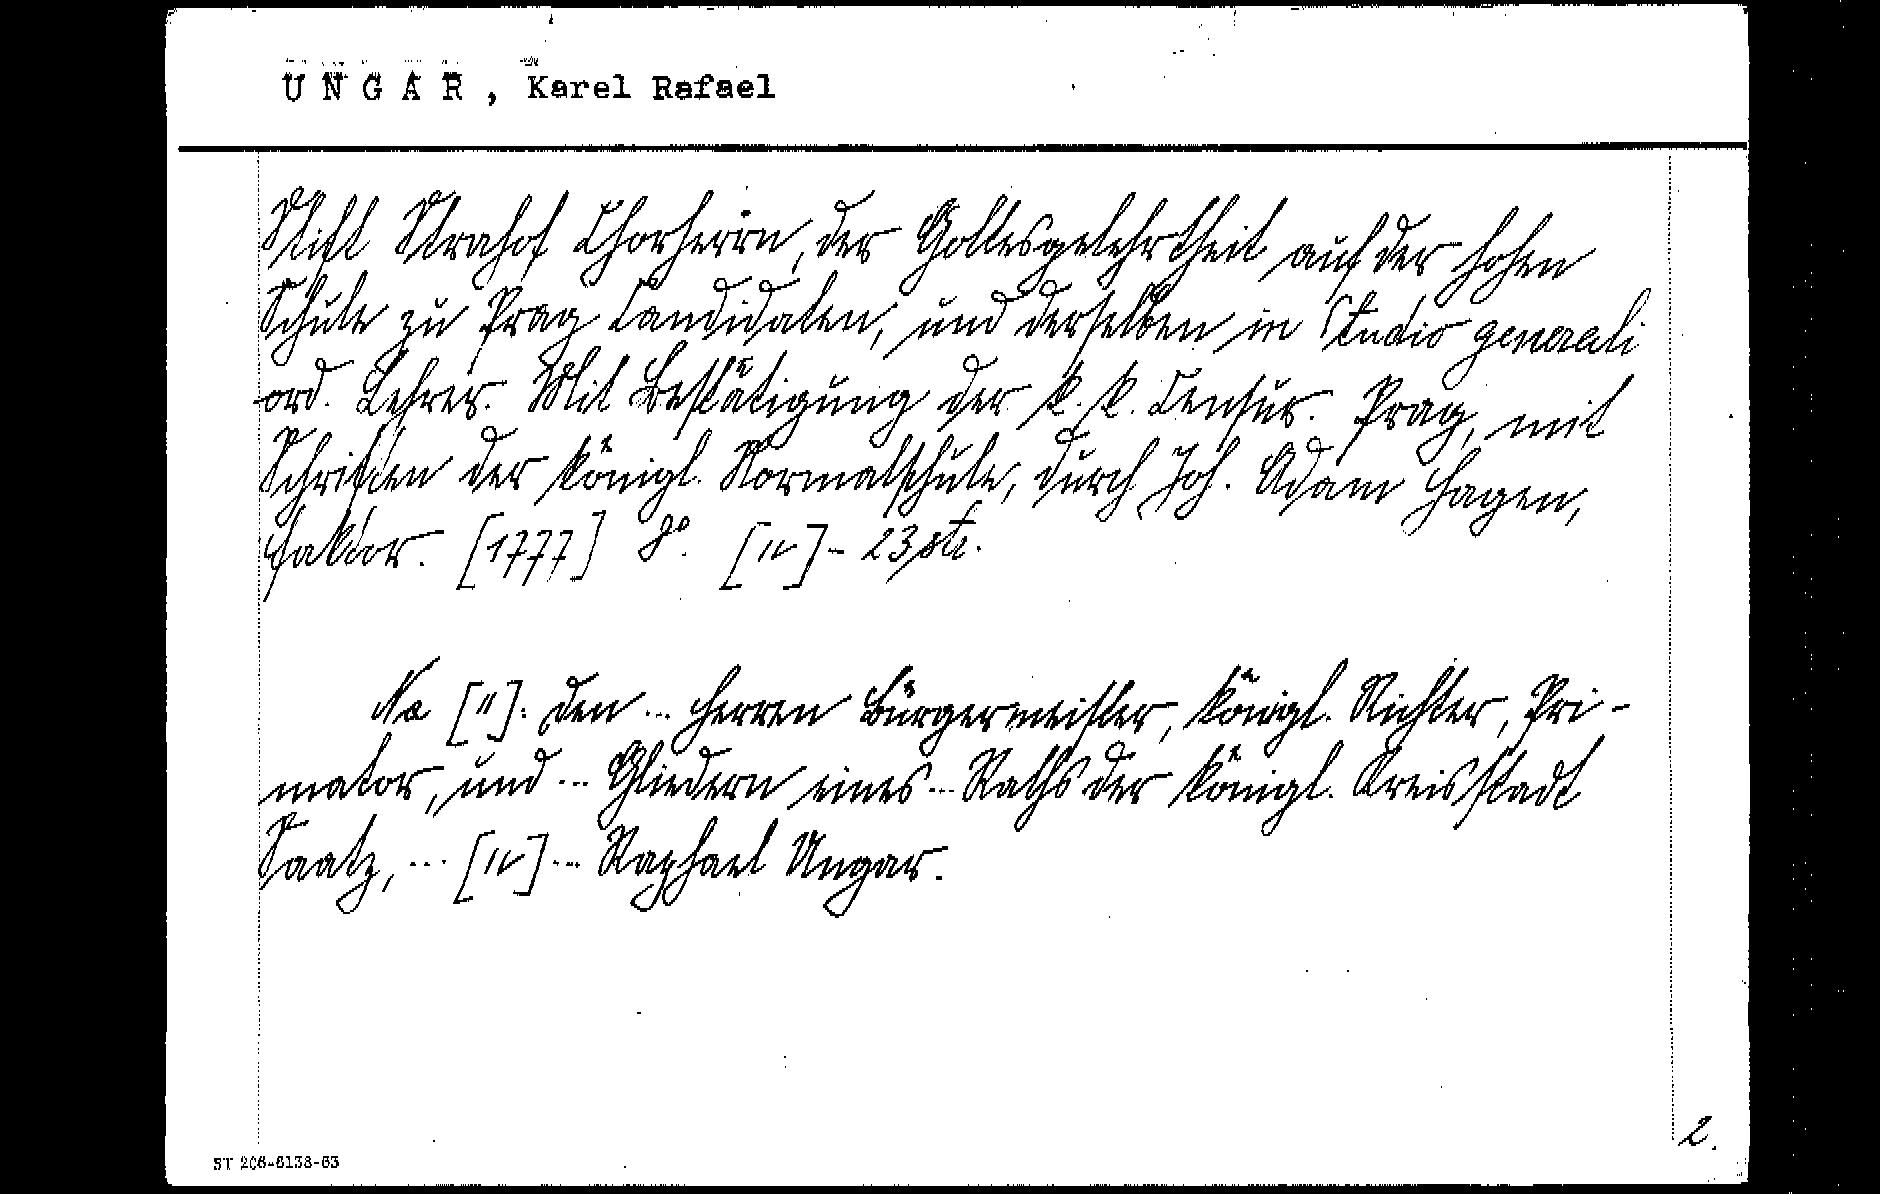 UNGAR, Karel Rafael
Stift Strahof Chorherrn, der Gottesgelehrtheit auf der hohen
Schule zu Prag Candidaten, und derselben in Studio generali
ord. Lehrer. Mit Bestätigung der k. k. Censur. Prag, mit
Schriften der königl. Normalschule, durch Joh. Adam Hagen,
Faktor. [1777] 8°. [IV] - 23 str.
Na [II]: den ... Herren Bürgermeister, königl. Richter, Pri-
mator, und ... Gliedern eines ... Raths der königl. Kreisstadt
Saatz, ... [IV] ... Raphael Ungar.
2.
ST 206-6138-63